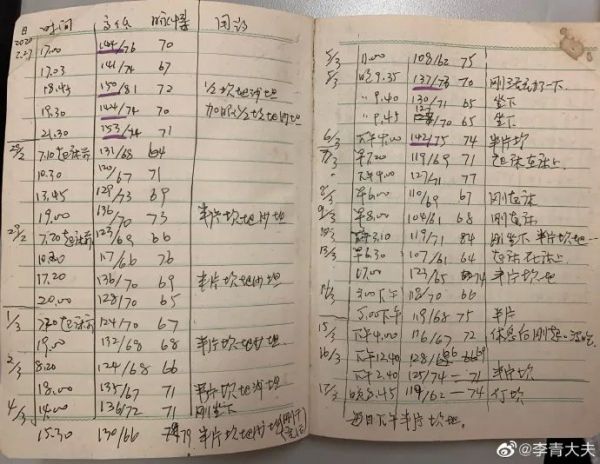 日 时间 高/低 脉博
2020
2.27 17.00 144/76 70
17.03 141/74 67
18.45 150/81 72 坎地沙坦
19.30 144/74 70 坎地沙坦
21.30 153/74 71
28/2 7.10 起床前 131/68 64
10.30 120/67 71
13.45 129/73 69
19.00 136/70 73 半片坎地沙坦
29/2 7.20 起床前 123/69 66
10.20 117/66 76
17.20 136/70 69 半片坎地沙坦
20.00 128/70 65
1/3 7.20 起床前 124/70 67
19.00 132/68 68 半片坎地沙坦
2/3 8.20 124/68 66
18.00 135/67 71 半片坎地沙坦
4/3 14.00 136/72 71 刚坐下
15.30 130/66 79 半片坎地沙坦
5/3 11.00 108/62 75
5/3 晚9.35 137/78 70 刚
" 9.40 130/71 65 坐下
" 9.45 /70 65 坐下
6/3 下午4.00 142/75 74 半片坎
7/3 早7.20 119/69 71 起床在床上
下午4.00 127/71 77
8/3 早6.00 110/69 67 刚起床
9/3 早8.00 104/61 68 刚起床
3.10 119/71 84 刚坐下 半片坎地
13/3 早6.30 107/61 64 在床上
17.00 123/65 74 半片坎地
3.00下午 118/70 66
5.00下午 119/68 75 半片
15/3 下午4.00 116/67 72 休息后
16/3 下午12.40 128/68
下午2.40 125/74 — 71 半片坎
17/3 晚8.45 119/62 — 74 坎
每日下午半片坎地.
@李青大夫